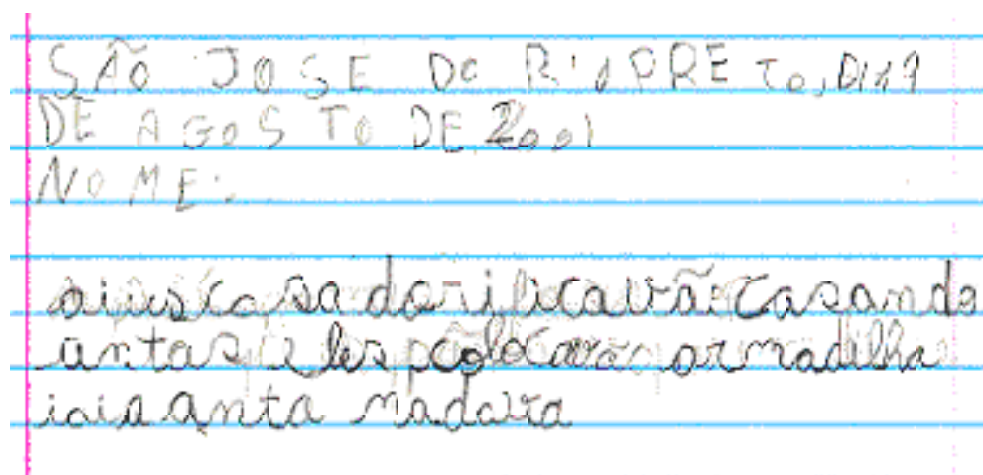 SÃO JOSE DO RIO PRETO, DIA 9
DE AGOSTO DE 2001
NOME:
casadori ficavão casando
antas i les colocavão armadilha
anta nadava